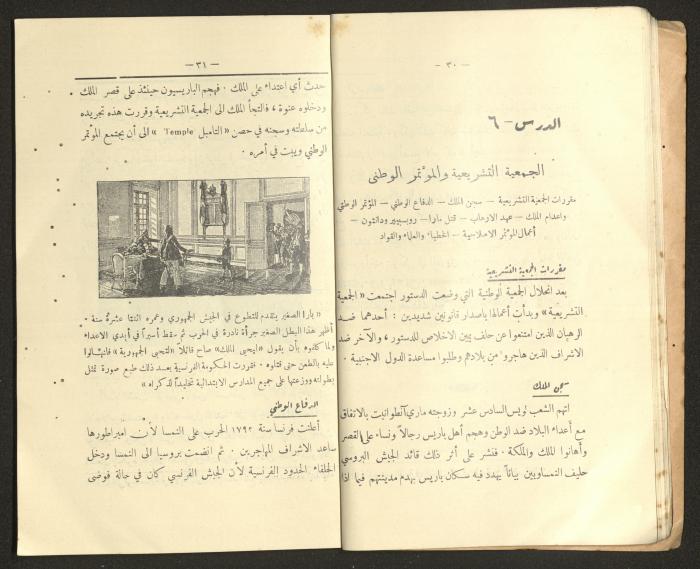 — ٣٠ —
الدرس — ٦
الجمعية التشريعية والمؤتمر الوطني
مقررات الجمعية التشريعية — سجن الملك — الدفاع الوطني — المؤتمر الوطني
واعدام الملك — عهد الارهاب — قتل مارا — روبسبيير ودانتون —
أعمال المؤتمر الاصلاحية — الخطباء والعلماء والقواد
مقررات الجمعية التشريعية
بعد انحلال الجمعية الوطنية التي وضعت الدستور اجتمعت « الجمعية
التشريعية » وبدأت أعمالها باصدار قانونين شديدين : أحدهما ضد
الرهبان الذين امتنعوا عن حلف يمين الاخلاص للدستور ، والآخر ضد
الاشراف الذين هاجروا من بلادهم وطلبوا مساعدة الدول الاجنبية .
سجن الملك
اتهم الشعب لويس السادس عشر وزوجته ماري آنطوانيت بالاتفاق
مع أعداء البلاد ضد الوطن وهجم أهل باريس رجالاً ونساء على القصر
وأهانوا الملك والملكة . فنشر على أثر ذلك قائد الجيش البروسي
حليف النمساويين بياناً يهدد فيه سكان باريس بهدم مدينتهم فيما اذا
— ٣١ —
حدث أي اعتداء على الملك . فهجم الباريسيون حينئذ على قصر الملك
ودخلوه عنوة ، فالتجأ الملك الى الجمعية التشريعية وقررت هذه تجريده
من سلطته وسجنه في حصن « التامبل Temple » الى أن يجتمع المؤتمر
الوطني ويبت في أمره .
« بارا الصغير يتقدم للتطوع في الجيش الجمهوري وعمره اثنتا عشرة سنة .
أظهر هذا البطل الصغير جرأة نادرة في الحرب ثم سقط أسيراً في أيدي الاعداء
ولما كلفوه بأن يقول « ليحيى الملك » صاح قائلاً « لتحيى الجمهورية » فانهالوا
عليه بالطعن حتى قتلوه . فقررت الحكومة الفرنسية بعد ذلك طبع صورة تمثل
بطولته ووزعتها على جميع المدارس الابتدائية تخليداً لذكراه »
الدفاع الوطني
أعلنت فرنسا سنة ١٧٩٢ الحرب على النمسا لأن امبراطورها
ساعد الاشراف المهاجرين . ثم انضمت بروسيا الى النمسا ودخل
الحلفاء الحدود الفرنسية لأن الجيش الفرنسي كان في حالة فوضى